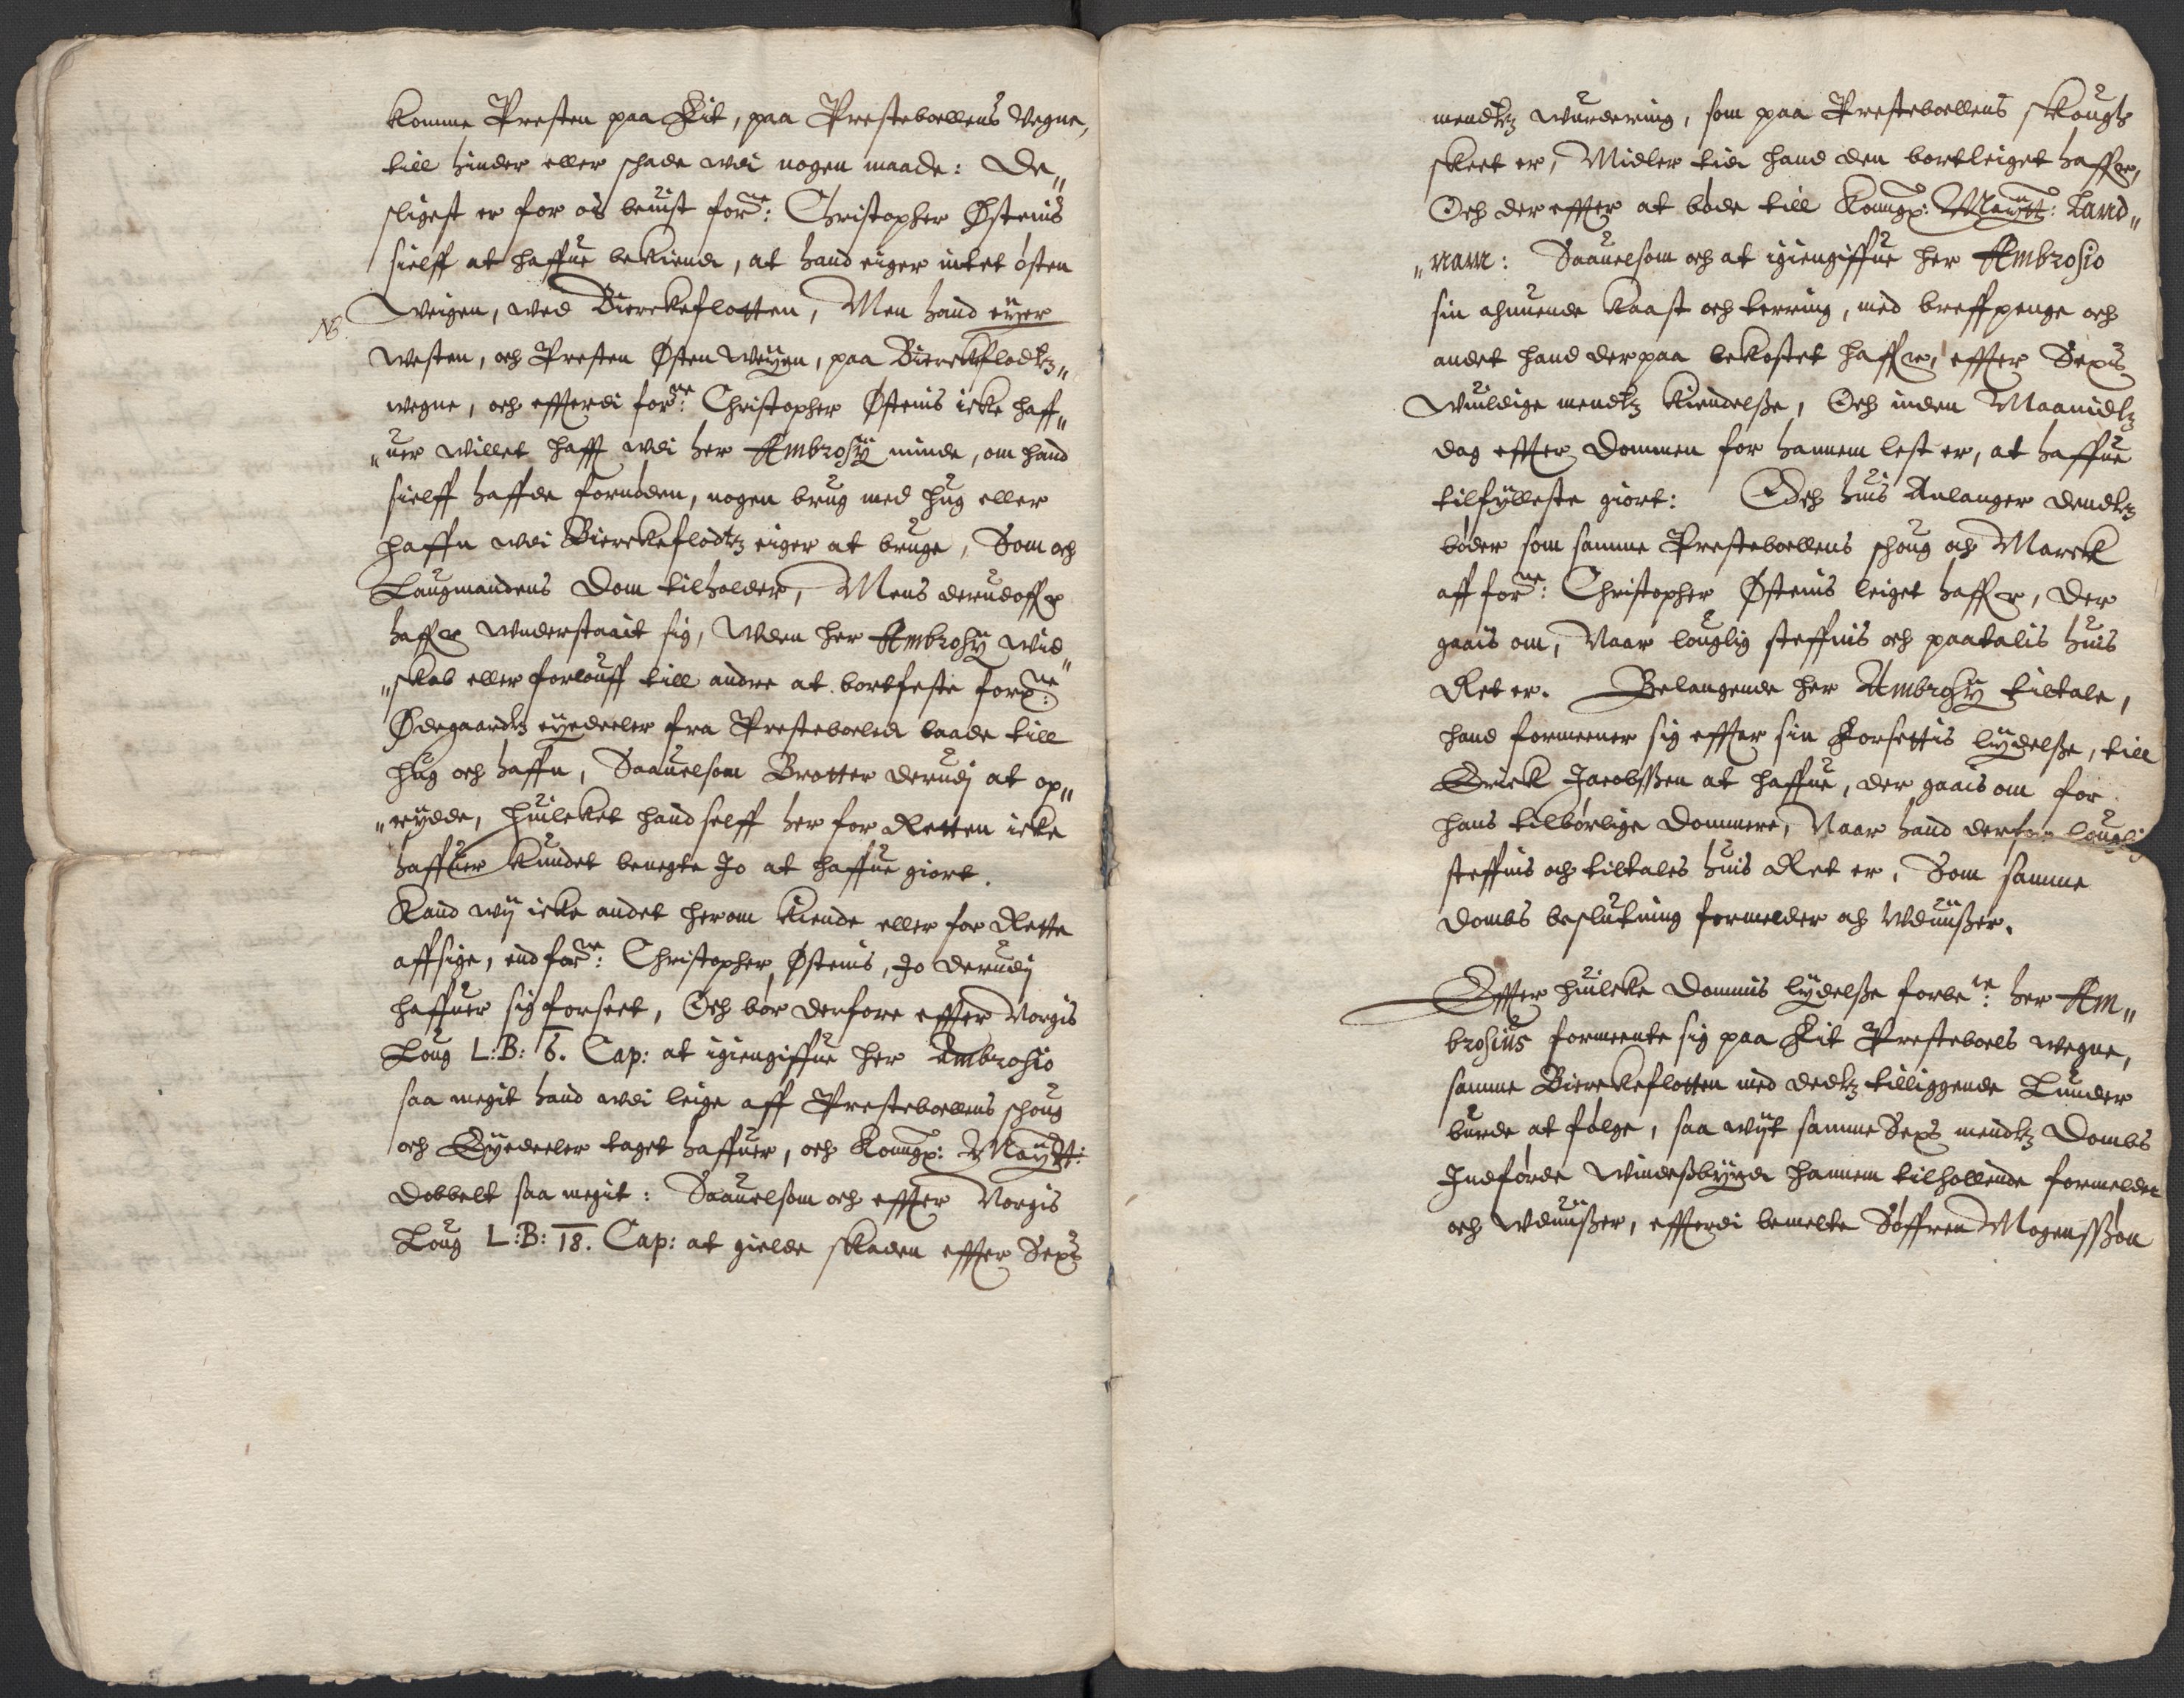 komme Presten paa Eit, paa Presteboellens Vegne,
till hinder eller schade wdi nogen maade: De„
sligest er for os beuist forne: Christopher Østenis
sielff at haffue bekiendt, at hand eiger intet østen
Weigen, wed Bierckeflotten, Men hand eÿer
NB.
westen, och Presten Østen Weÿen, paa Bierckeflodtz„
wegne, och effterdi forne: Christopher Østenis icke haff„
„uer willet hafft wdi her Ambrosÿ minde, om hand
sielff haffde fornøden, nogen brug med hug eller
haffn wdi Bierckeflodtz eiger at bruge, Som och
Laugmandens Dom tilholder, Mens derudoffr
haffr wnderstaait sig, Wden her Ambrosÿ wid„
„skab eller forlouff till andre at bortfeste forne:
Ødegaardtz eÿedeeler fra Presteboeled baade till
hug och haffn, Saauelsom Brotter derudj at op„
„rydde, huileket hand selff her for Retten icke
haffuer kundet benegte Jo at haffue giort.
Kand wij icke andet herom kiende eller for Rette
affsige, end forne: Christopher Østenis, Jo derudj
haffuer sig forseet, Och bør derfore effter Norgis
Loug L:B: 6. Cap: at igiengiffue her Ambrosio
saa megit hand wdi leige aff Presteboellens schoug
och Eÿedeeler taget haffuer, och Konngr: Maÿtt:
dobbelt saa megit: Saauelsom och effter Norgis
Loug L:B: 18. Cap: at gielde skaden effter Sex
mendtz wurdering, som paa Presteboellens skougs
skeet er, Midler tid hand den bortleiget haffr,
Och der effter at bøde till Konngr: Maÿtt: Land„
„nam: Saauelsom och at igiengiffue her Ambrosio
sin ahnuende kaast och terring, med breffpenge och
andet hand der paa bekostet haffr, effter Sex
Wuildige mendtz kiendelße, Och inden Maanidtz
dag effter Dommen for hannem lest er, at haffue
tilfÿlleste giort: Och huis Anlanger dendtz
bøder som samme Presteboellens schoug och Marck
aff forne: Christopher Østenis leiget haffr, der
gaais om, Naar louglig steffnis och paatalis huis
Ret er. Belangende her Ambrosÿ tiltale,
hand formeener sig effter sin Forsettis lÿdelße, till
Erick Jacobßen at haffue, der gaais om for
hans tilbørlige dommere, Naar hand derfor louglig
steffnis och tiltales huis Ret er, Som samme
dombs beslutning formelder och Wduißer.
Effter huilcke Dommis lÿdelße forbene: her Am„
brosius formeente sig paa Eit Presteboels wegne,
samme Bierckeflotten med dedtz tilliggende Lunder
burde at følge, saa wijt samme Sex mendtz Dombs
Indførde Windeßbÿrd hannem tilhollende formelder
och Wduißer, effterdi bemelte Søffren Mogenßøn